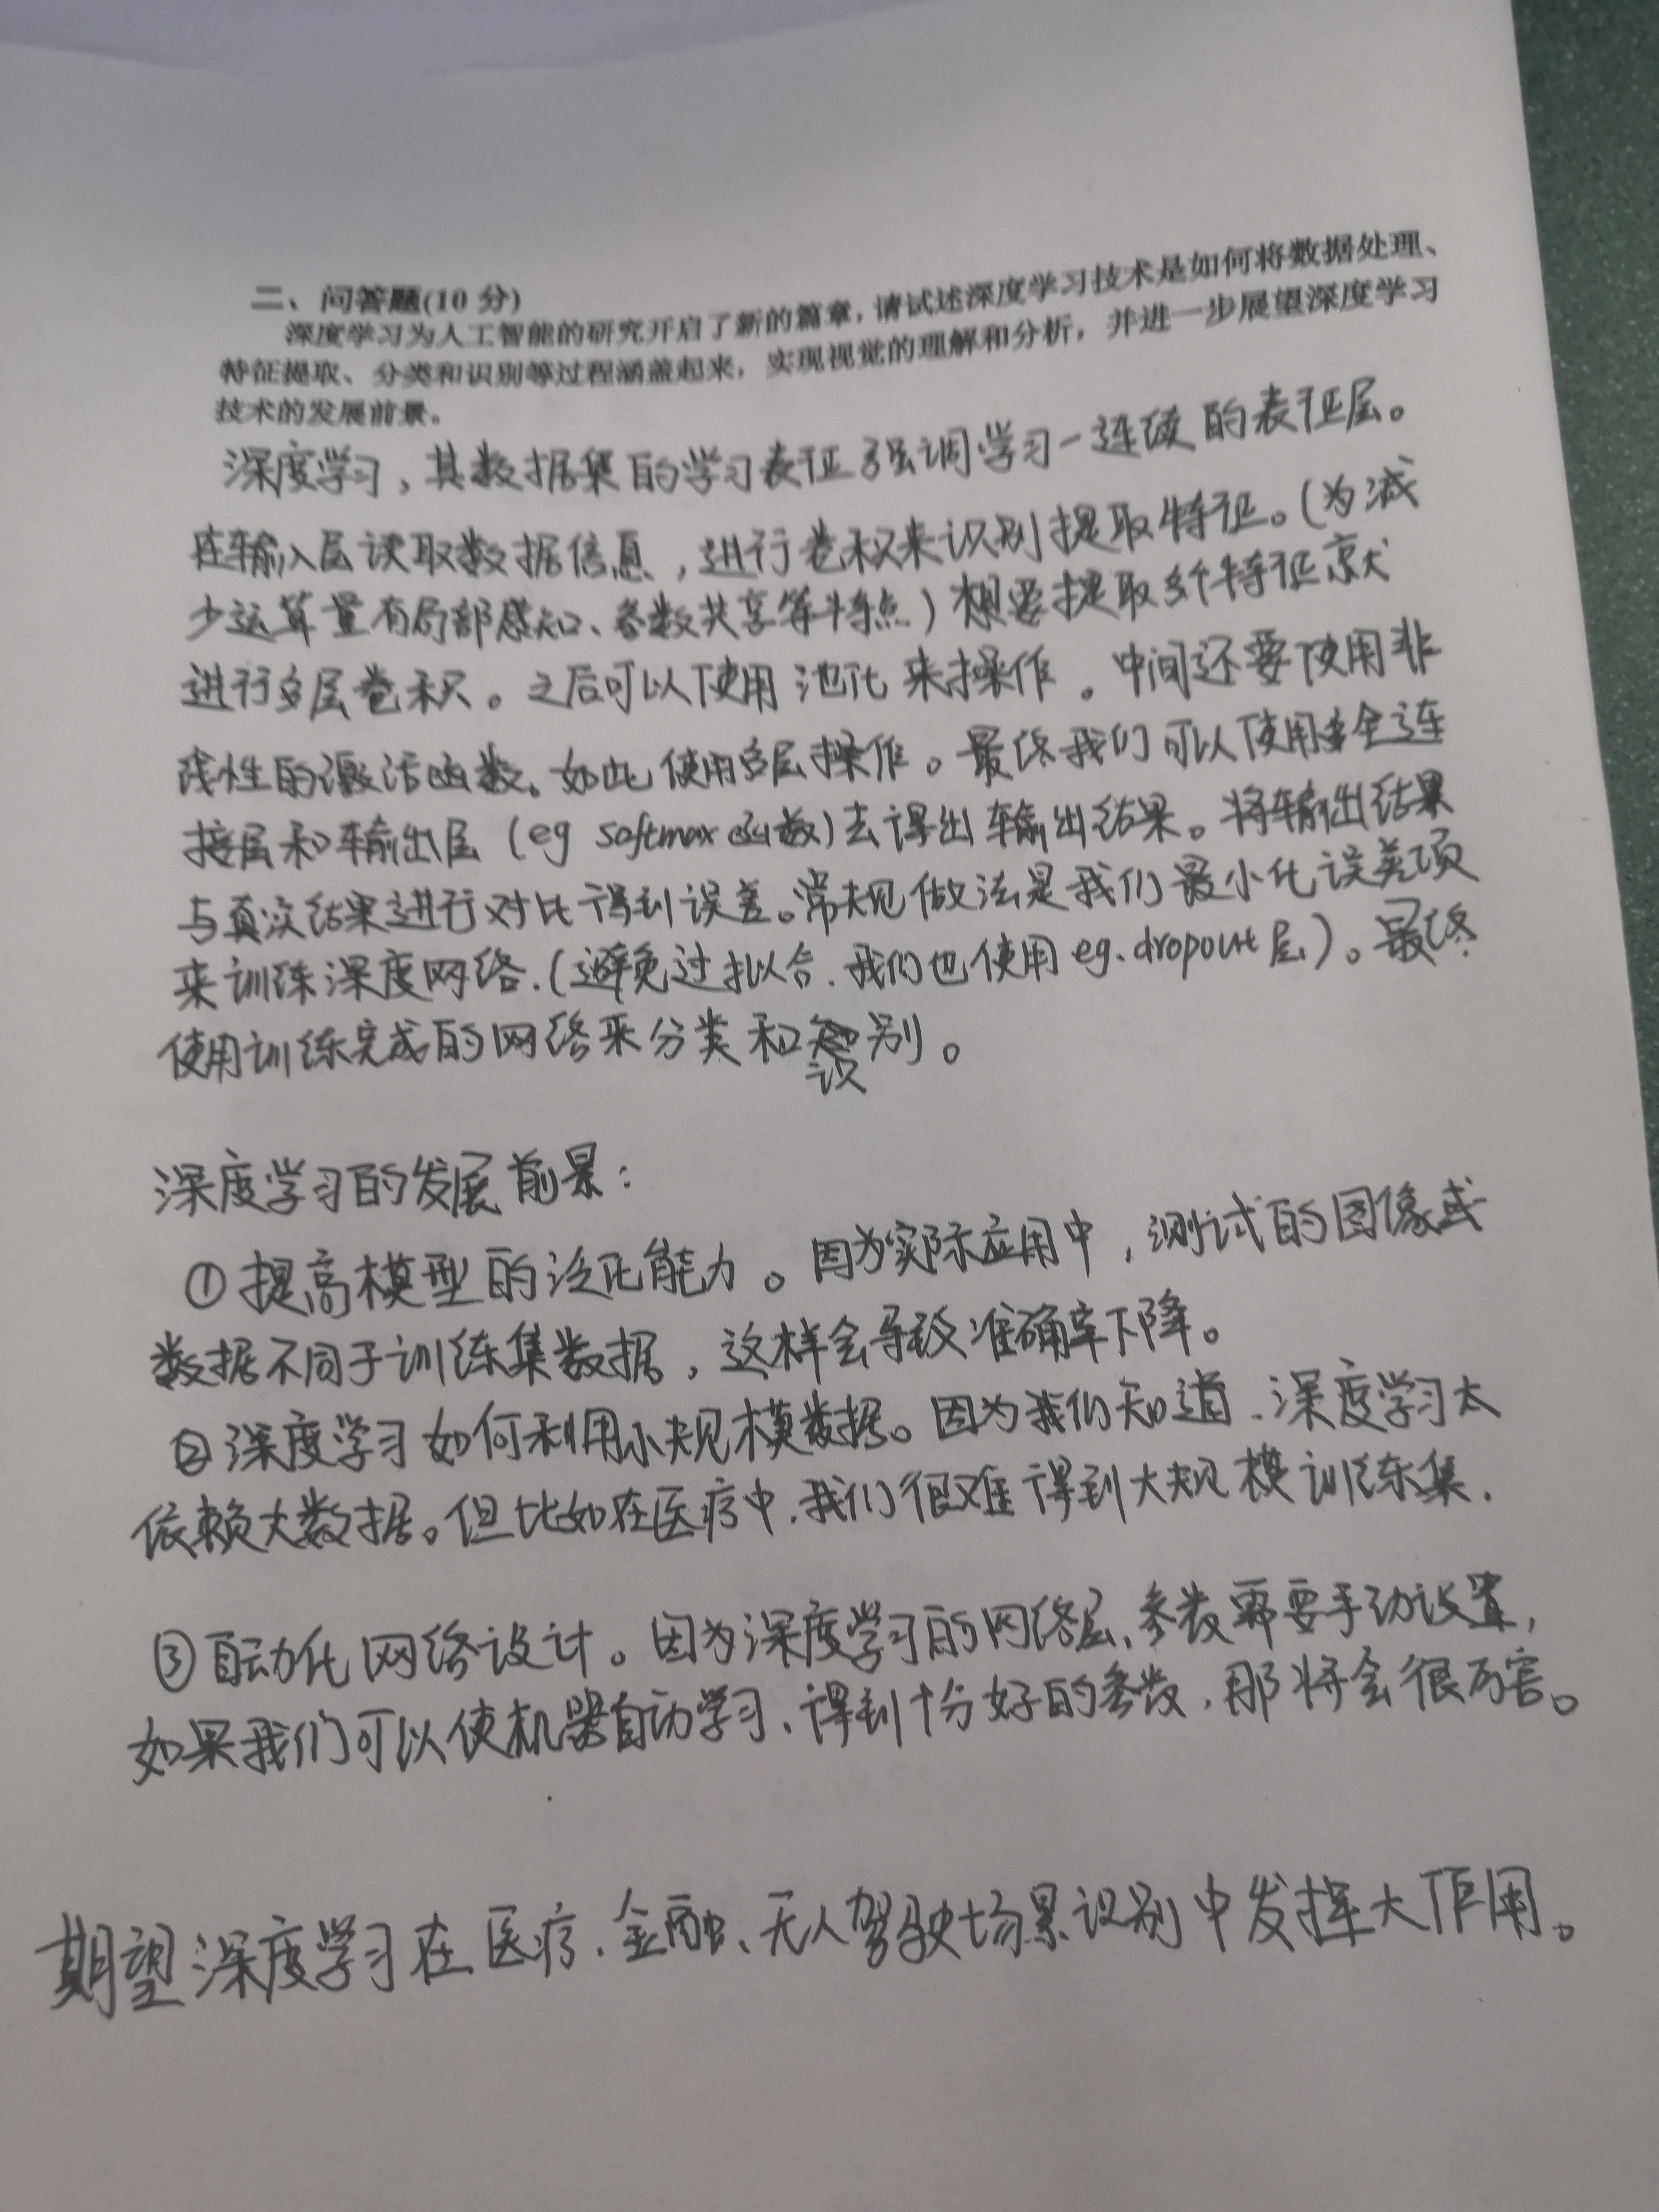 二、问答题(10 分)
深度学习为人工智能的研究开启了新的篇章,请试述深度学习技术是如何将数据处理、
特征提取、分类和识别等过程涵盖起来,实现视觉的理解和分析,并进一步展望深度学习
技术的发展前景。
深度学习,其数据集的学习表征强调学习一连续的表征层。
在输入层读取数据信息,进行卷积来识别提取特征。(为减
少运算量有局部感知、参数共享等特点)想要提取多个特征就
进行多层卷积。之后可以使用池化来操作。中间还要使用非
线性的激活函数。如此使用多层操作。最终我们可以使用全连
接层和输出层(eg softmax函数)去得出输出结果。将输出结果
与真实结果进行对比得到误差。常规做法是我们最小化误差项
来训练深度网络.(避免过拟合.我们也使用eg.dropout层)。最终
使用训练完成的网络来分类和识别。
深度学习的发展前景:
①提高模型的泛化能力。因为实际应用中,测试的图像或
数据不同于训练集数据,这样会导致准确率下降。
②深度学习如何利用小规模数据。因为我们知道、深度学习太
依赖大数据。但比如在医疗中,我们很难得到大规模训练集.
③自动化网络设计。因为深度学习的网络层、参数需要手动设置,
如果我们可以使机器自动学习、得到十分好的参数,那将会很厉害。
期望深度学习在医疗、金融、无人驾驶场景识别中发挥大作用。